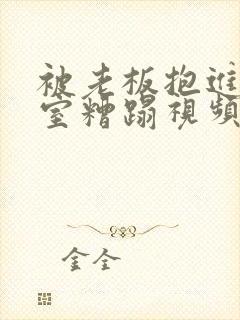 被老板抱进
室糟蹋视频
金全